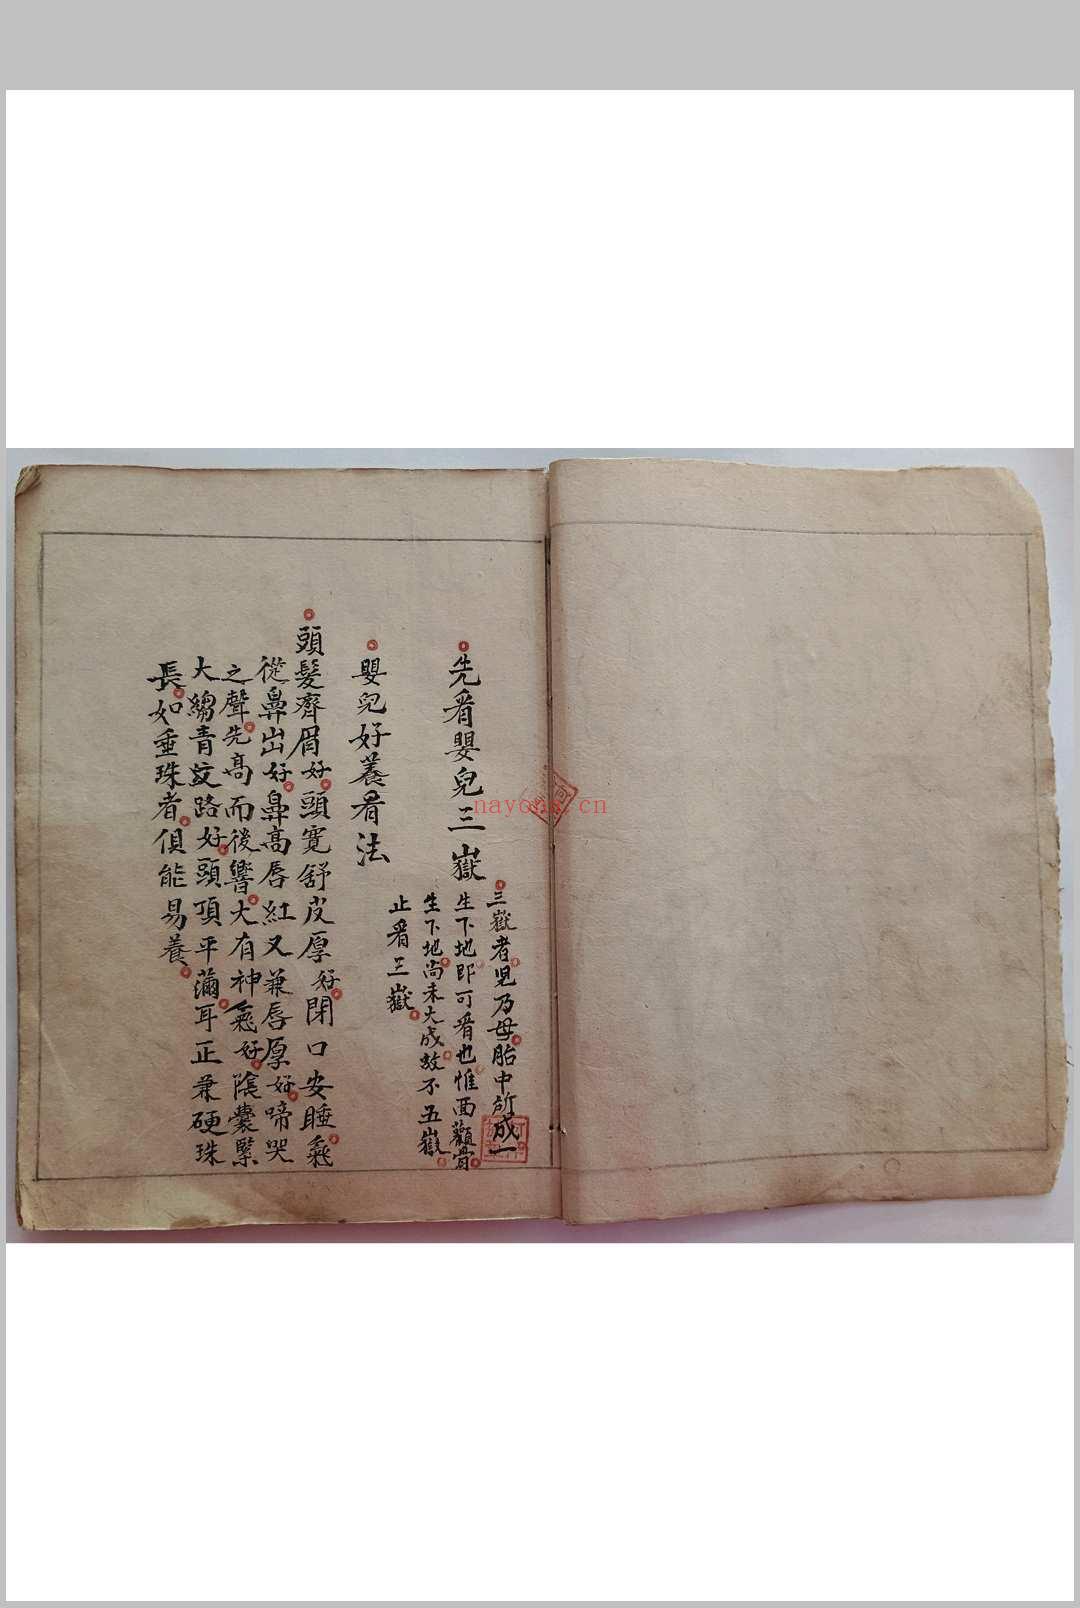 先看嬰兒三嶽
三嶽者児乃母胎中所成一
生下地即可看也惟面顴骨
生下地尚未大成故不五嶽
止看三嶽
嬰兒好養看法
頭髮齊眉好頭寬舒皮厚好閉口安睡氣
從鼻出好鼻高唇紅又兼唇厚好啼哭
之聲先高而後響大有神氣好陰囊緊
大縐青紋路好頭頂平滿耳正兼硬珠
長如垂珠者俱能易養
nayona.cn